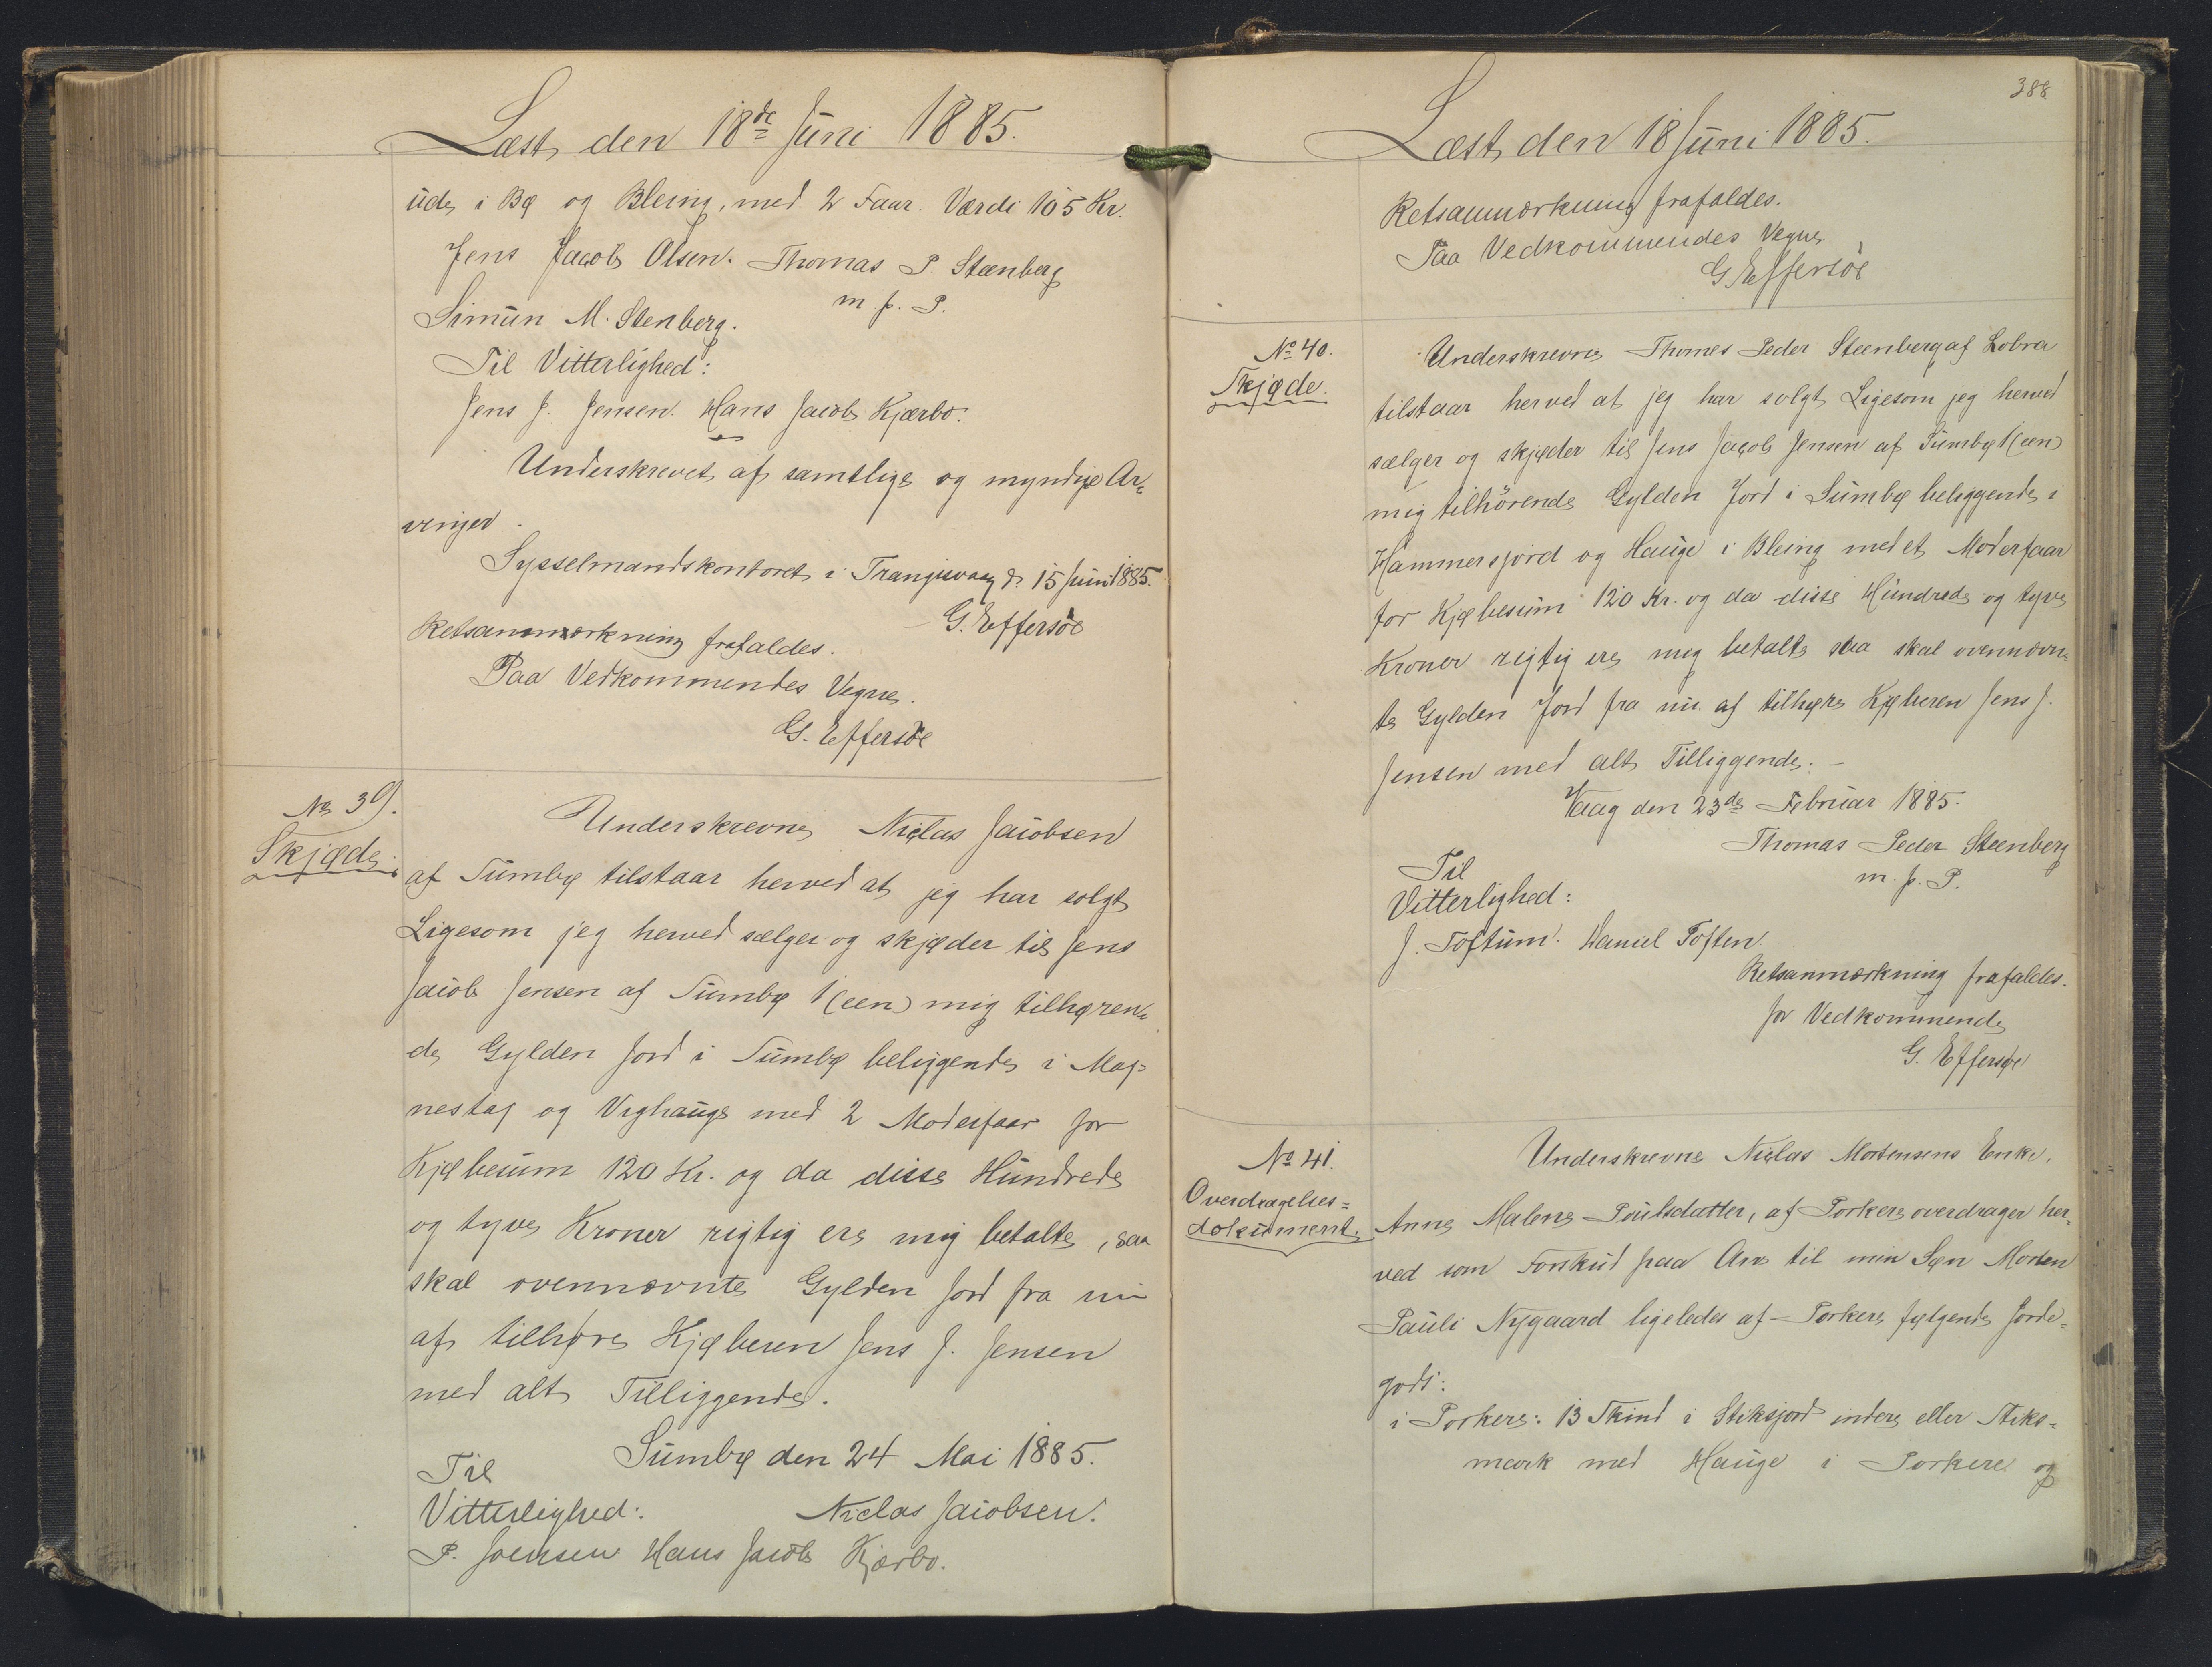 Læst den 18de Juni 1885.
ude i Bø og Bleing, med 2 Faar. Værdi 105 Kr.
Jens Jacob Olsen. Thomas P. Steenberg
m. p. P.
Simun M. Stenberg.
Til Vitterlighed:
Jens J. Jensen. Hans Jacob Kjærbo.
Underskrevet af samtlige og myndige Ar=
vinger.
Sysselmandskontoret i Trangisvaag d. 15 Juni 1885.
G. Effersöe
Retsanmærkning frafaldes.
Paa Vedkommendes Vegne.
G. Effersöe
No 39.
Skjøde.
Underskrevne Niclas Jacobsen
af Sumbø tilstaar herved at jeg har solgt
Ligesom jeg herved sælger og skjøder til Jens
Jacob Jensen af Sumbø 1 (een) mig tilhøren=
de Gylden Jord i Sumbø beliggende i Mag=
nestag og Vighauge med 2 Moderfaar for
Kjøbesum 120 Kr. og da disse Hundrede
og tyve Kroner rigtig ere mig betalte, saa
skal ovennævnte Gylden Jord fra nu
af tilhøre Kjøberen Jens J. Jensen
med alt Tilliggende.
Sumbø den 24 Mai 1885.
Til
Vitterlighed: Niclas Jacobsen.
P. Joensen Hans Jacob Kjærbo.
388
Læst den 18 Juni 1885.
Retsanmærkning frafaldes.
Paa Vedkommendes Vegne
G. Effersöe
No 40.
Skjøde.
Underskrevne Thomes Peder Steenberg af Lobra
tilstaar herved at jeg har solgt Ligesom jeg herved
sælger og skjøder til Jens Jacob Jensen af Sumbø 1 (een)
mig tilhörende Gylden Jord i Sumbø beliggende i
Hammersjord og Hauge i Bleing med et Moderfaar
for Kjøbesum 120 Kr. og da disse Hundrede og tyve
Kroner rigtig ere mig betalte saa skal ovennævn=
te Gylden Jord fra nu af tilhøre Kjøberen Jens J.
Jensen med alt Tilliggende. –
Vaag den 23de Februar 1885.
Thomas Peder Steenberg
m. p. P.
Til
Vitterlighed:
J. Toftum. Daniel Toften.
Retsanmærkning frafaldes.
for Vedkommende
G. Effersøe
No 41.
Overdragelses=
dokument.
Underskrevne Niclas Mortensens Enke,
Anne Malene Poulsdatter, af Porkere overdrager her=
ved som Forskud paa Arv til min Søn Morten
Pauli Nygaard ligeledes af Porkere følgende Jorde=
gods:
i Porkere: 13 Skind i Stiksjord indere eller Stiks=
mærk med Hauge i Porkere og